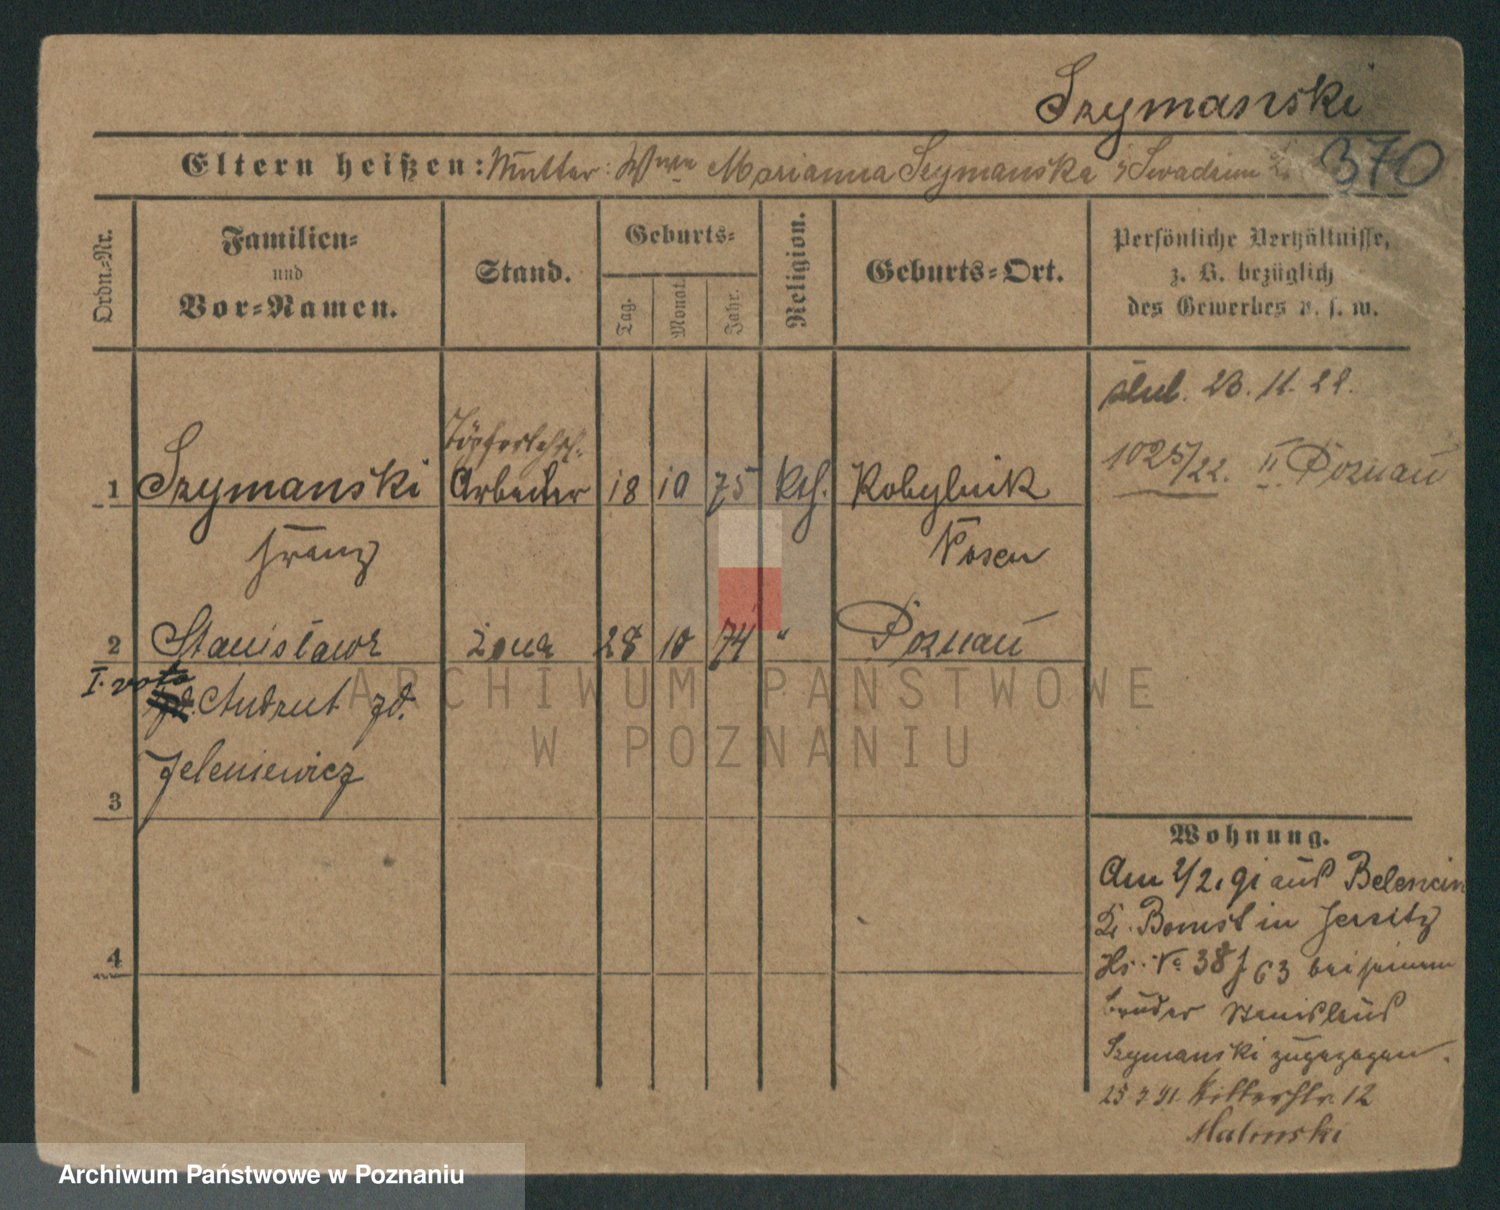 Szymanski
Eltern heißen: Mutter: Wwe Marianna Szymanska
370
Ordn.-Nr.
Familien-
und
Vor-Namen.
Stand.
Geburts-
Tag.
Monat.
Jahr.
Religion.
Geburts-Ort.
Persönliche Verhältnisse,
z. B. bezüglich
des Gewerbes u. s. w.
ślub. 23. 11. 22.
1025/22. II Poznań
Töpferlehrl.
1 Szymanski Arbeiter 18 10 75 kth. Kobylnik
Franz Posen
2 Stanisława żona 28 10 74 " Poznań
I. voto
Andrut zd.
Jeleniewicz
3
4
Wohnung.
Am 2/2. 91 aus Belencin
Kr. Bomst in Jersitz
Hs. No 38 f 63 bei seinem
Bruder Stanislaus
Szymanski zugezogen.
25.3.91. Ritterstr. 12
Malinski
ARCHIWUM PAŃSTWOWE
W POZNANIU
Archiwum Państwowe w Poznaniu